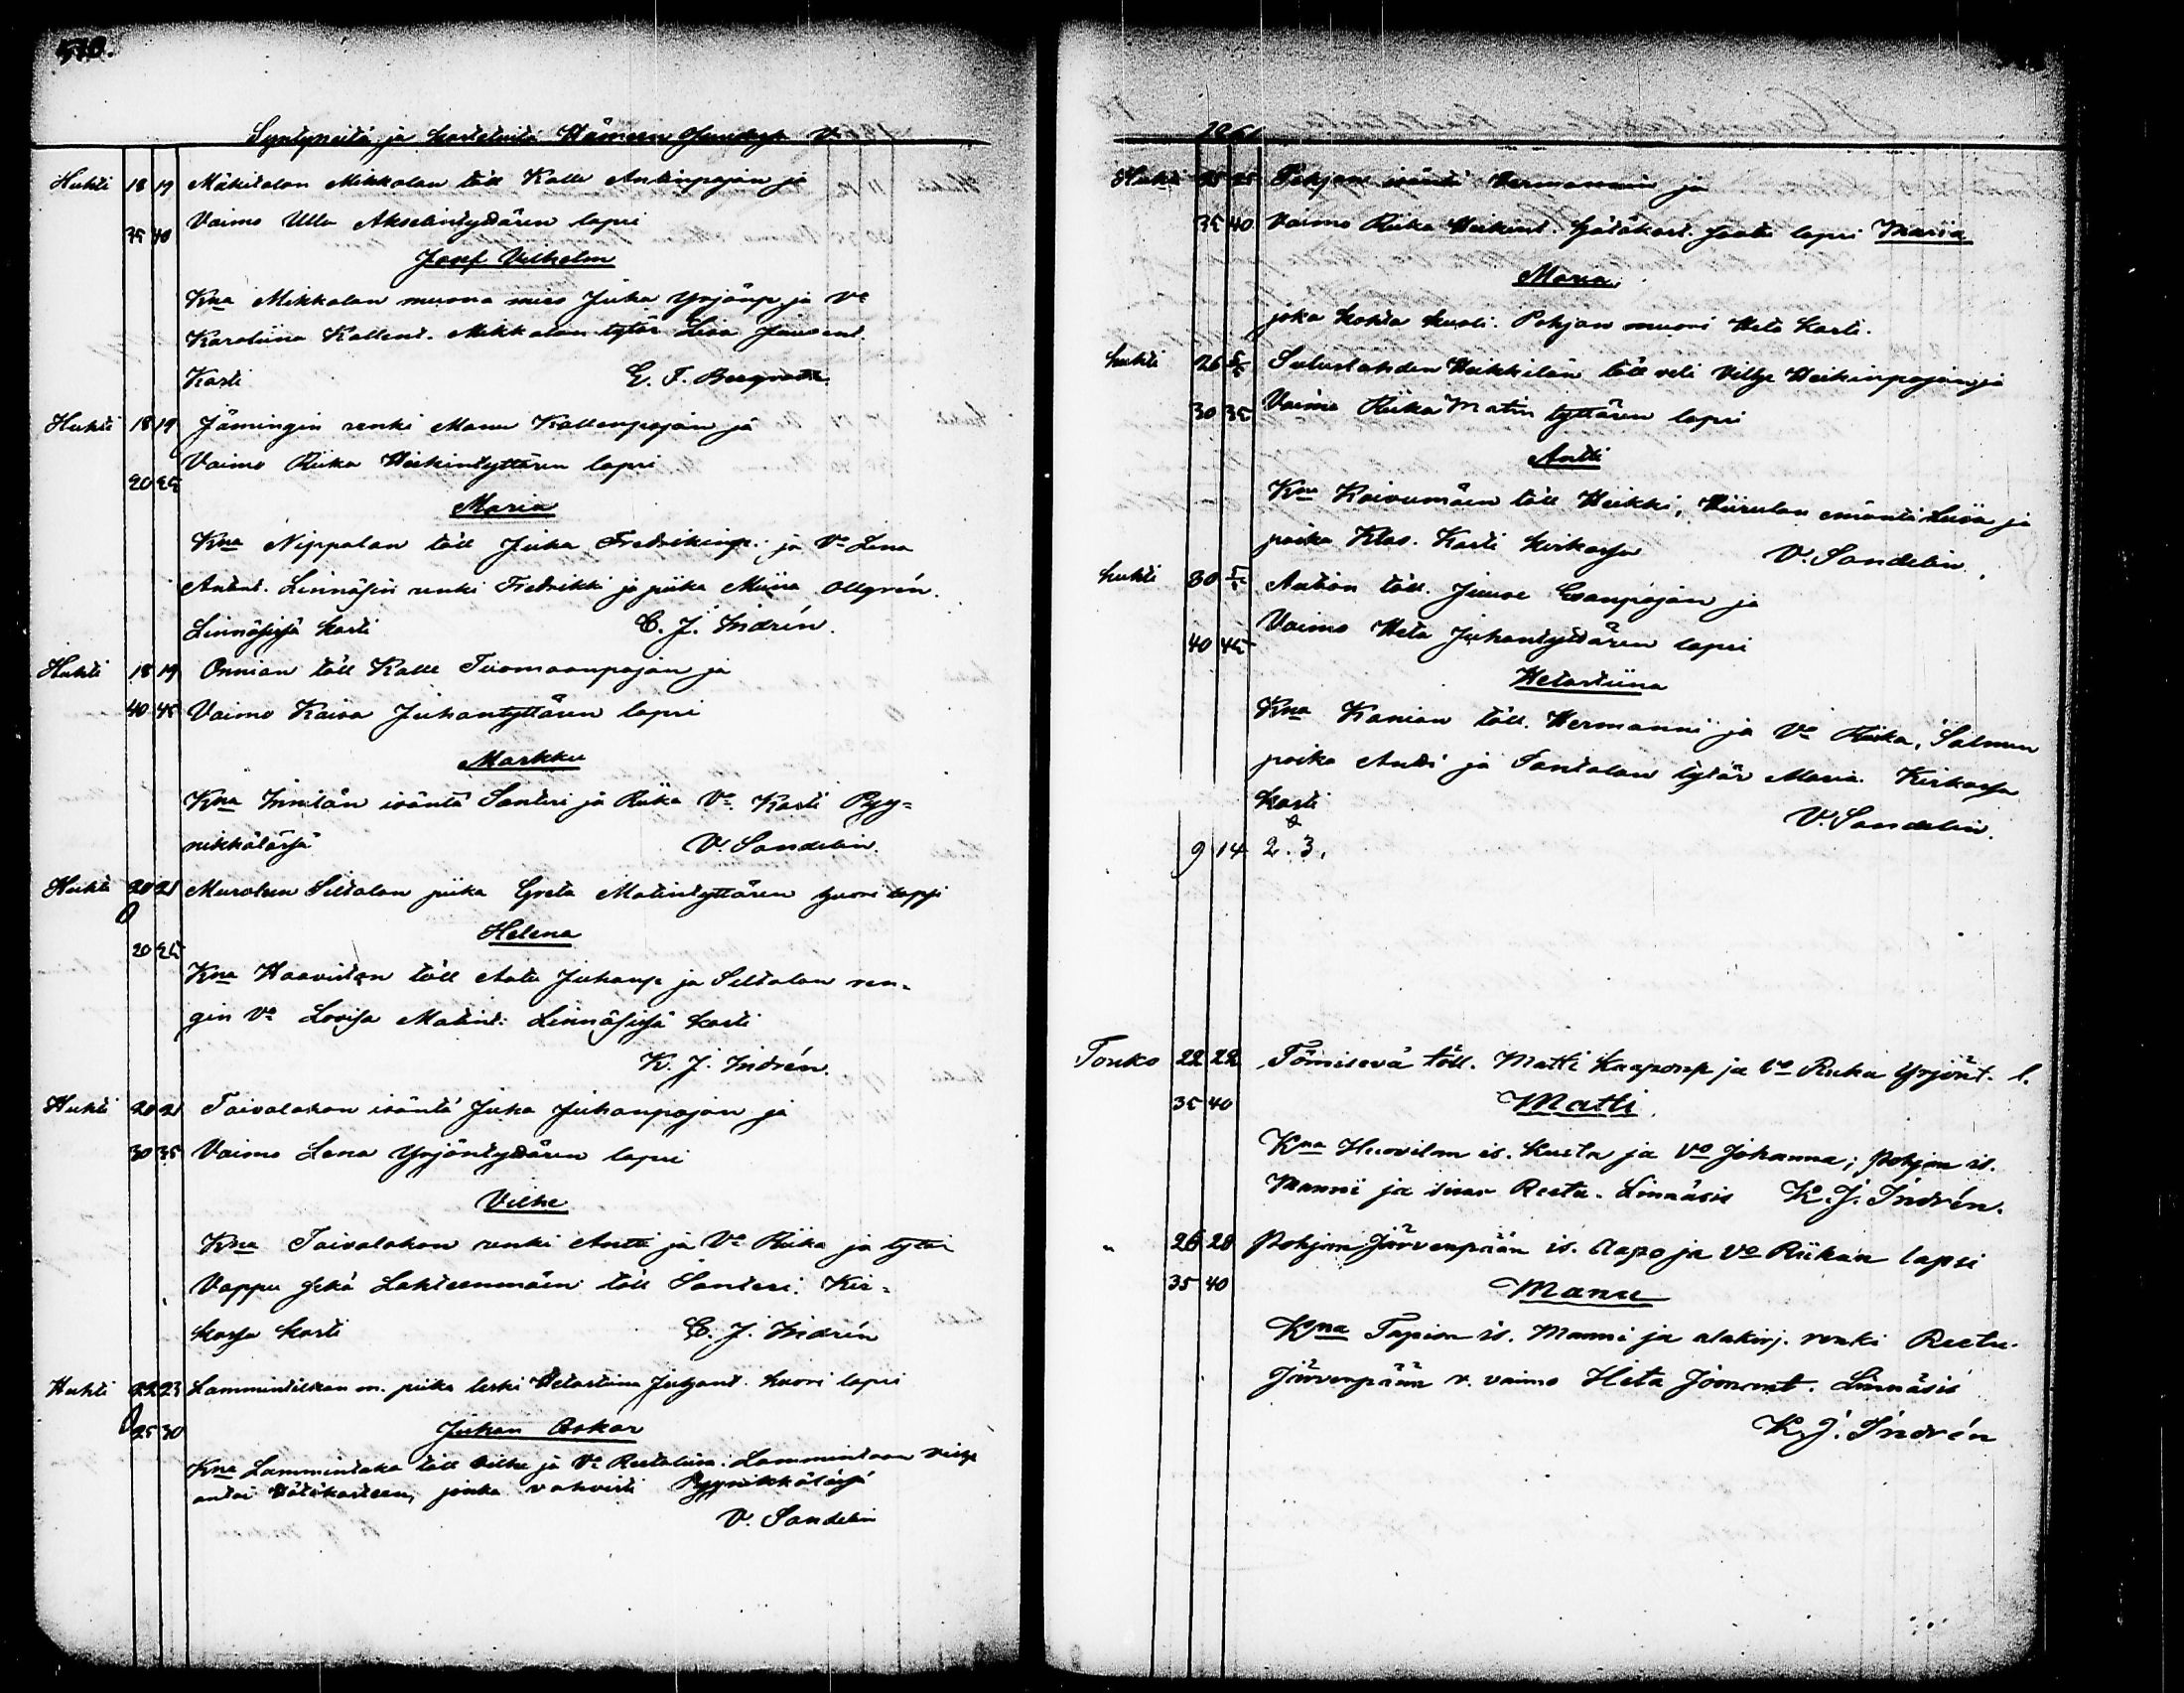 570.
Syntyneitä ja kastetuita Hämeen
Huhti 18 19 Mäkitalon Mikkolan töll Kalle Antinpojan ja
35 40 Vaimo Ulla Akselintyttären lapsi
Josef Vilhelm
Kna Mikkolan muona mies Juha Yrjönp. ja Vo
Karoliina Kallent. Mikkolan tytär Liisa
Kasti E. F. Bergroth
Huhti 18 19 Jämingin renki Manu Kallenpojan ja
20 25 Vaimo Riika Heikintyttären lapsi
Maria
Kna Nippalan töll Juha Fredrikinp. ja Vo Lena
Antint. Linnäisin renki Fredrikki ja piika Miina Ollgrén.
Linnäisissä kasti C. J. Indrén.
Huhti 18 19 Onnian töll Kalle Tuomaanpojan ja
40 45 Vaimo Kaisa Juhantyttären lapsi
Markku
Kna isäntä Santeri ja Riika Vo. Kasti Pyy=
nikkälässä V. Sandelin.
Huhti 20 21 Muroleen Siltalan piika Greta Matintyttären huori lapsi
Helena
20 25
Kna Haaviston töll Aatu Juhanp. ja Siltalan ren=
gin Vo Lovisa Matint: Linnäisissä kasti
K. J. Indrén.
Huhti 20 21 Taivalahon isäntä Juha Juhanpojan ja
30 35 Vaimo Lena Yrjöntyttären lapsi
Vilhe
Kna Taivalahon renki Antti ja Vo Riika ja tytär
Vappu sekä Lahteenmäen töll Santeri. Kir=
kossa kasti C. J. Indrén
Huhti 22 23 Lammintilkan m. piika leski Hetastiina Juhant. huori lapsi
25 30 Juhan Oskar
Kna töll Vilhe ja Vo
antoi Hätäkasteen, jonka vahvisti Pyynikkälässä
V. Sandelin
1861
Huhti 25 25 Pohjan isäntä Hermannin ja
35 40 Vaimo Riika Heikint. hätäkast. lapsi Maria
Maria
joka kohta kuoli. Pohjan muori Heta kasti.
huhti 26 5/5 Heikkilän töll veli Ville Heikinpojan ja
30 35 Vaimo Riika Matin tyttären lapsi
Antti
Kna Koivumäen töll Heikki, Hiirulan emäntä Liisa ja
poika Klas. Kasti kirkossa V. Sandelin.
huhti 30 5/5 Aution töll. Juuse Esanpojan ja
40 45 Vaimo Heta Juhantyttären lapsi
Hetastiina
Kna Kanian töll. Hermanni ja Vo Riika, Salmen
poika Antti ja Tantalan tytär Maria. Kirkossa
kasti V. Sandelin.
9 14 2. 3.
Touko 22 22 Tömisevä töll. Matti Kaaponp ja Vo Riika Yrjönt. l.
35 40 Matti
Kna Huovilan is. Kusta ja Vo Johanna; Pohjan is.
Manni ja sisar Reeta. Linnäisis K. J. Indrén.
" 26 28 Pohjan Järvenpään is. Aapo ja Vo Riikan lapsi
35 40 Manu
Kna Tapion is. Manni ja alakirj. renki Reetu.
Järvenpään r. vaimo Heta Joonant. Linnäsis
K. J. Indrén